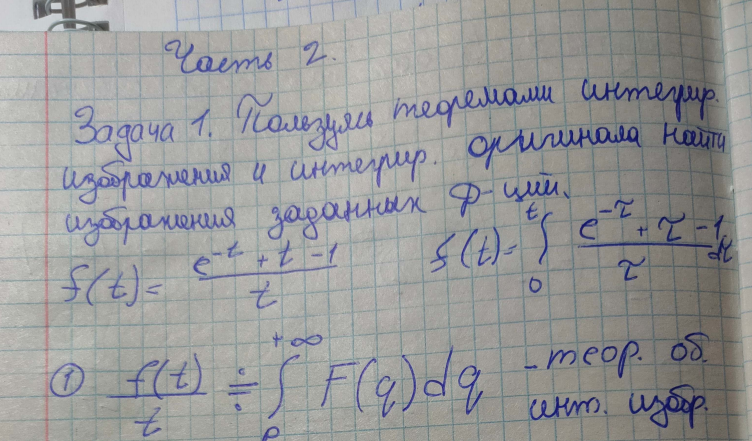 Часть 2.
Задача 1. Пользуясь теоремами интегрир.
изображения и интегрир. оригинала найти
изображения заданных ф-ций.
f(t) = (e^{-t} + t - 1)/t    f(t) = ∫_0^t (e^{-τ} + τ - 1)/τ dτ
① f(t)/t ≑ ∫_p^{+∞} F(q)dq - теор. об.
инт. изобр.